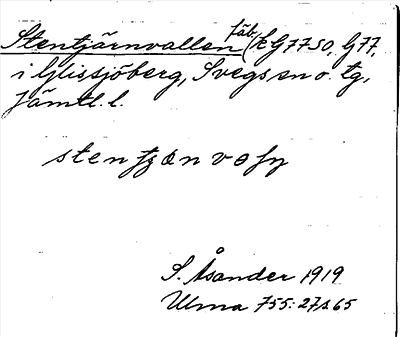 Stentjärnvallen fäb. (E G7750, G77,
i Glissjöberg, Svegs sn o. tg,
Jämtl. l.
S. Åsander 1919
Ulma 755: 27 s. 65